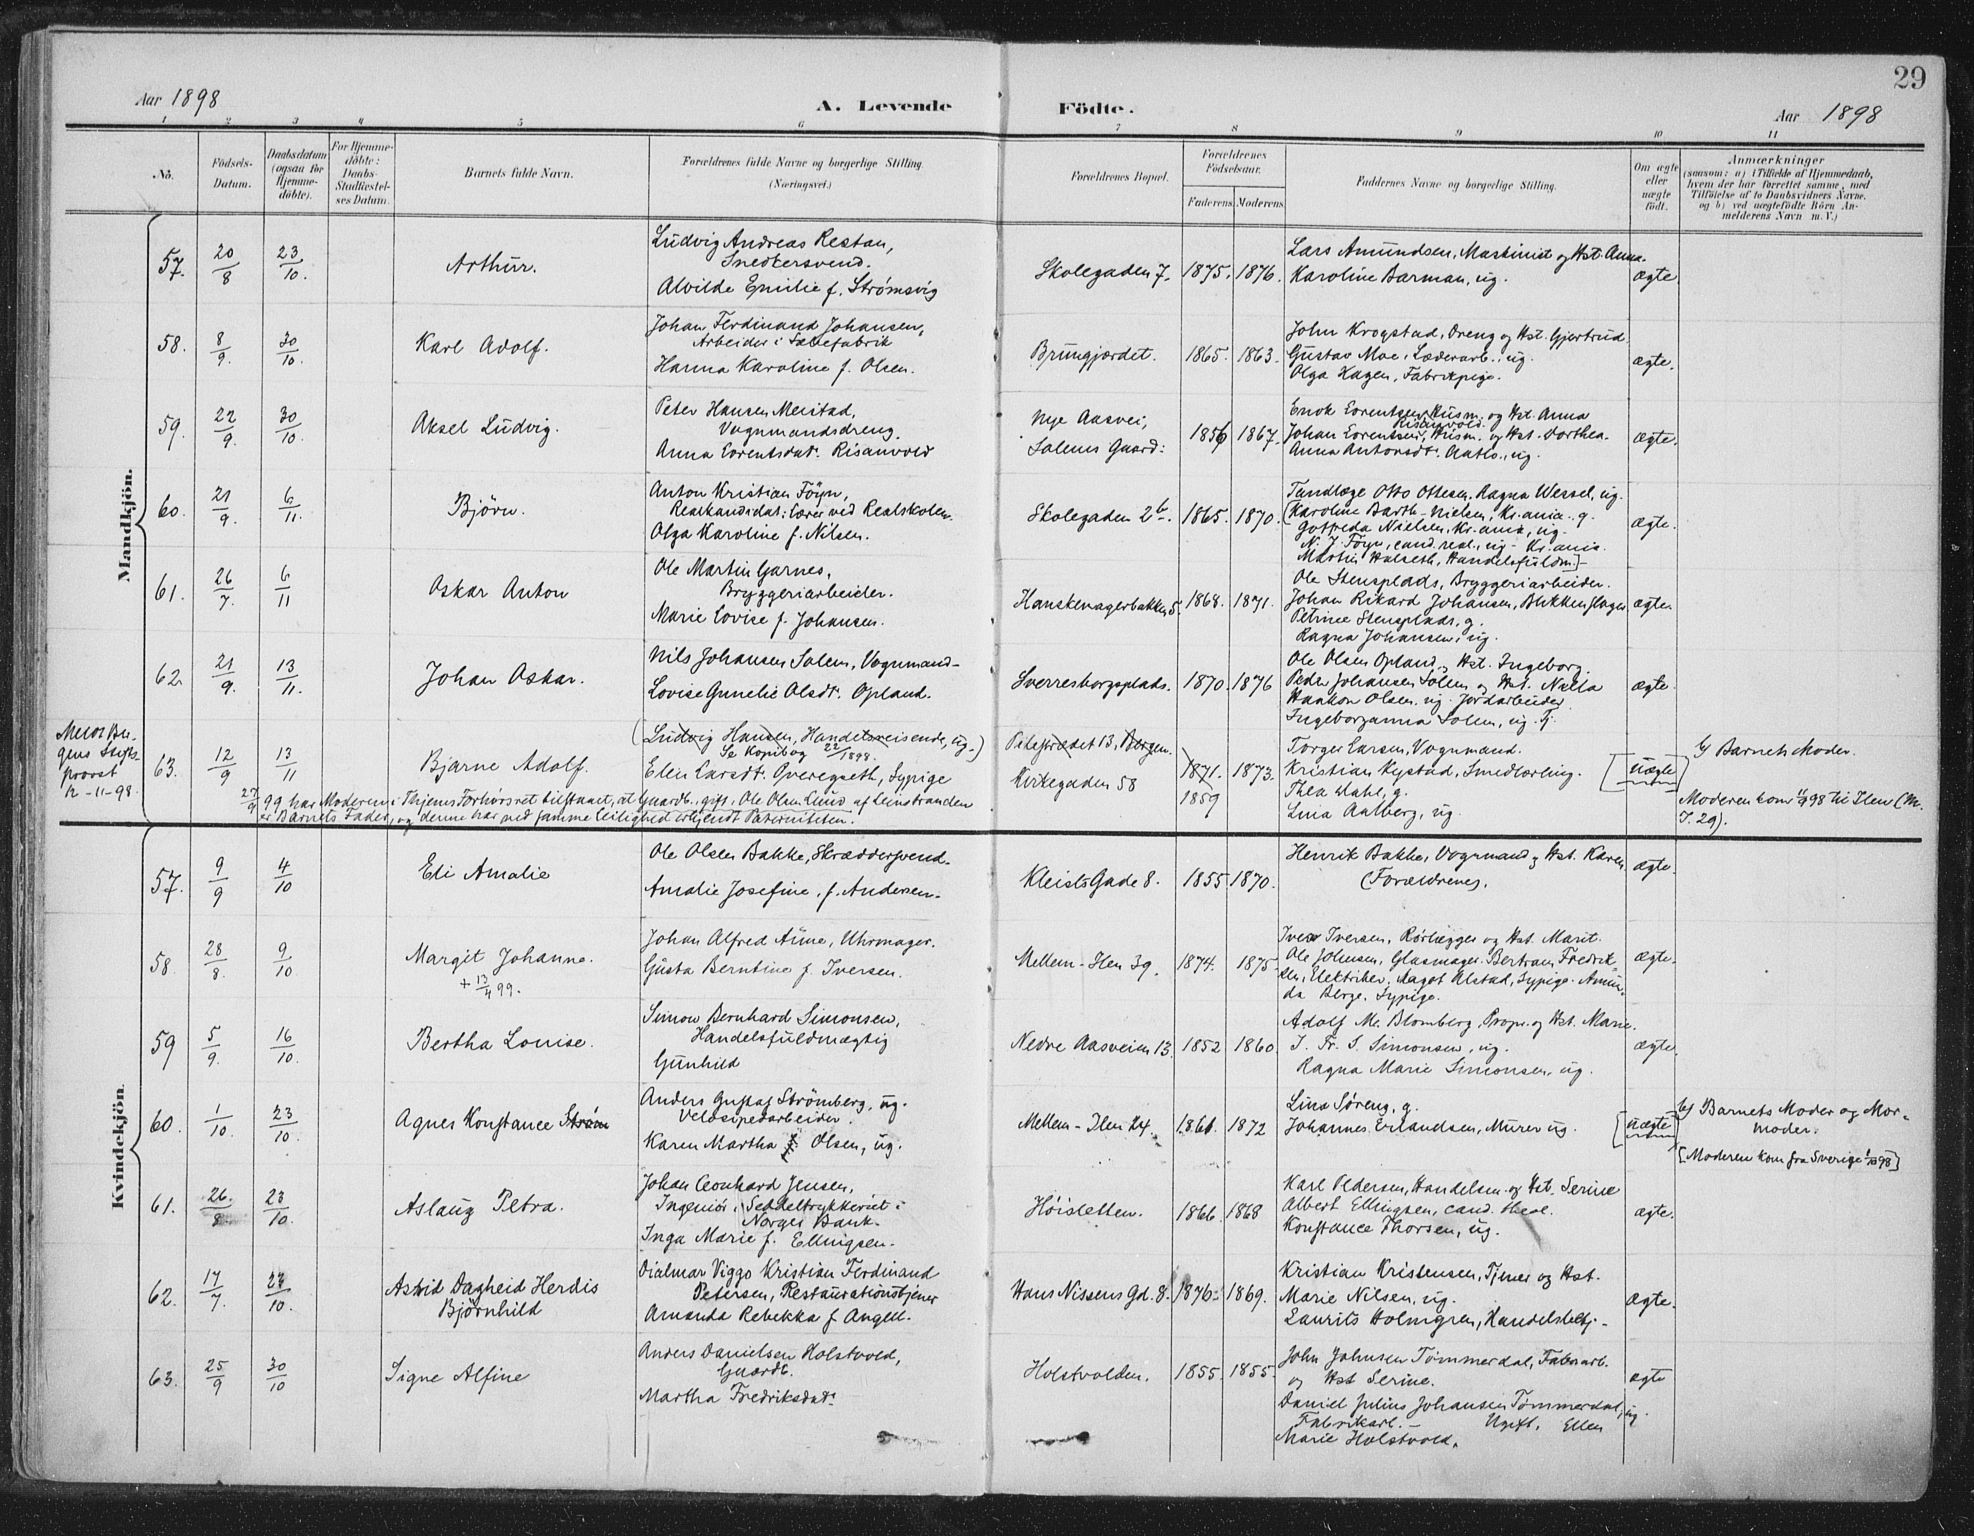 29
Aar 1898
A. Levende
Födte.
Aar 1898
1 2 3 4 5 6 7 8 9 10 11
No.
Födsels-
Datum.
Daabsdatum
(ogsaa for
Hjemme-
döbte).
For Hjemme-
döbte:
Daabs-
Stadfæstel-
ses Datum.
Barnets fulde Navn.
Forældrenes fulde Navne og borgerlige Stilling
(Næringsvei.)
Forældrenes Bopæl.
Forældrenes
Födselsaar.
Faderens
Moderens
Faddernes Navne og borgerlige Stilling.
Om ægte
eller
uægte
födt.
Anmærkninger
(saasom: a) i Tilfælde af Hjemmedaab,
hvem der har forrettet samme, med
Tilföielse af to Daabsvidners Navne,
og b) ved uægtefödte Börn An-
melderens Navn m. V.)
Mandkjön.
57. 20/8 23/10. Arthur.
Ludvig Andreas Restan,
Snedkersvend.
Alvilde Emilie f. Strømsvig
Skolegaden 7. 1875. 1876.
Lars Amundsen, Maskinist og Hst. Anna.
Karoline Barman, ug.
ægte.
58. 8/9. 30/10. Karl Adolf.
Johan Ferdinand Johansen,
Arbeider i Sæbefabrik
Hanna Karoline f. Olsen.
Brungjordet. 1865. 1863.
John Krogstad, Dreng og Hst. Gjertrud.
Gustav Moe, Læderarb., ug.
Olga Hagen, Fabrikpige.
ægte.
59. 22/9. 30/10. Aksel Ludvig.
Peter Hansen Meistad,
Vognmandsdreng.
Anna Lorentsdatr. Risanvold
Nye Aasvei,
Solems Gaard: 1856 1867.
Enok Lorentsen, Husm. og Hst. Anna
Risanvold.
Johan Lorentsen, Husm. og Hst. Dorthea.
Anna Antonsdtr. Aatlo, ug.
ægte.
60. 21/9. 6/11. Björn.
Anton Kristian Föyn,
Realkandidat; Lærer ved Realskolen.
Olga Karoline f. Nilsen.
Skolegaden 2b. 1865. 1870.
Tandlæge Otto Ottesen, Ragna Wessel, ug.
(Karoline Barth-Nielsen, Kr.ania. g.
Gotfreda Nielsen, Kr.ania, ug.
N. J. Föyn, cand. real., ug - Kr.ania.
Martin Halseth, Handelsfuldm)-
ægte.
61. 26/7. 6/11 Oskar Anton
Ole Martin Garnes,
Bryggeriarbeider.
Marie Lovise f. Johansen.
Hanskemagerbakken 5. 1868. 1871.
Ole Stensplads, Bryggeriarbeider.
Johan Rikard Johansen, Blikkenslager
Petrine Stensplads, g.
Ragna Johansen, ug.
ægte.
62. 21/9. 13/11. Johan Oskar.
Nils Johansen Solem, Vognmand-
Lovise Gunelie Olsdtr. Opland.
Sverresborgsplads. 1870. 1876
Ole Olsen Opland og Hst. Ingeborg.
Peder Johansen Solem og Hst. Nella
Haakon Olsen, ug. Jordarbeider
Ingeborganna Solem, ug. Tj.
ægte.
provst
12-11-98.
63. 12/9 13/11 Bjarne Adolf.
(Ludvig Hansen, Handelsreisende, ug.)
Se Kopibog 22/1898.
Elen Larsdtr. Overegseth, Sypige
Pilestrædet 13, Bergen.
Kirkegaden 58
1871. 1873.
1859
Torger Larsen, Vognmand.
Kristian Rystad, Smedlærling.
Thea Dahl, g.
Lina Aalberg, ug.
[uægte]
b) Barnets Moder.
Moderen kom 11/9 98 til Ilen (M.
J. 29).
27/9 99 har Moderen i Thjems Forhørsret tilstaaet, at Gaardb., gift, Ole Olsen Lund af Leinstranden
er Barnets Fader, og denne har ved samme Leilighed erkjendt Paterniteten.
Kvindekjön.
57. 9/9 4/10 Eli Amalie
Ole Olsen Bakke, Skræddersvend.
Amalie Josefine, f. Andersen.
Kleists Gade 8. 1855 1870.
Henrik Bakke, Vognmand og Hst. Karen
(Forældrene).
ægte.
58. 28/8. 9/10 Margit Johanne.
+ 13/4 99.
Johan Alfred Aune, Uhrmager.
Gusta Berntine f. Iversen.
Mellem-Ilen 39. 1874. 1875.
Iver Iversen, Rörlægger og Hst. Marit.
Ole Johnsen, Glasmager. Bertram Fredrik-
sen, Elektriker, Aagot Alstad, Sypige. Amun-
da Berge, Sypige.
ægte.
59 5/9. 16/10. Bertha Louise.
Simon Bernhard Simonsen,
Handelsfuldmægtig
Gunhild
Nedre Aasveien 13. 1852 1860.
Adolf M. Blomberg, Propr. og Hst. Marie.
J. Fr. S. Simonsen, ug.
Ragna Marie Simonsen, ug.
ægte.
60. 1/10. 23/10. Agnes Konstance Strøm
Anders Gustaf Strömberg, ug.
Velosipedarbeider.
Karen Martha f. Olsen, ug.
Mellem-Ilen 24. 1861. 1872
Lina Søreng, g.
Johannes Erlandsen, Murer ug.
[uægte]
b) Barnets Moder og Mor-
moder.
[Moderen kom fra Sverige 1/10 98]
61. 26./8 23/10. Aslaug Petra.
Johan Leonhard Jensen,
Ingeniør i Seddeltrykkeriet i
Norges Bank.
Inga Marie f. Ellingsen.
Höisletten. 1866. 1868
Karl Pedersen, Handelsm. og Hst. Serine
Albert Ellingsen, cand. theol.
Konstance Thorsen, ug.
ægte.
62. 17/7. 23/10. Astrid Dagheid Herdis
Björnhild
Oialmar Viggo Kristian Ferdinand
Petersen, Restaurationstjener
Amanda Rebekka f. Angell.
Hans Nissens Gd. 8. 1876. 1869.
Kristian Kristensen, Tjener og Hst.
Marie Nilsen, ug.
Laurits Holmgren, Handelsbetj.
ægte.
63. 25/9 30/10 Signe Alfine
Anders Danielsen Holstvold,
Gaardb.
Martha Fredriksdatr.
Holstvolden. 1855. 1855.
John Johnsen Tømmerdal, Fabrikarb.
og Hst Serine.
Daniel Julius Johansen Tømmerdal, ug.
Fabrikarb. - Ugift, Ellen
Marie Holstvold.
ægte